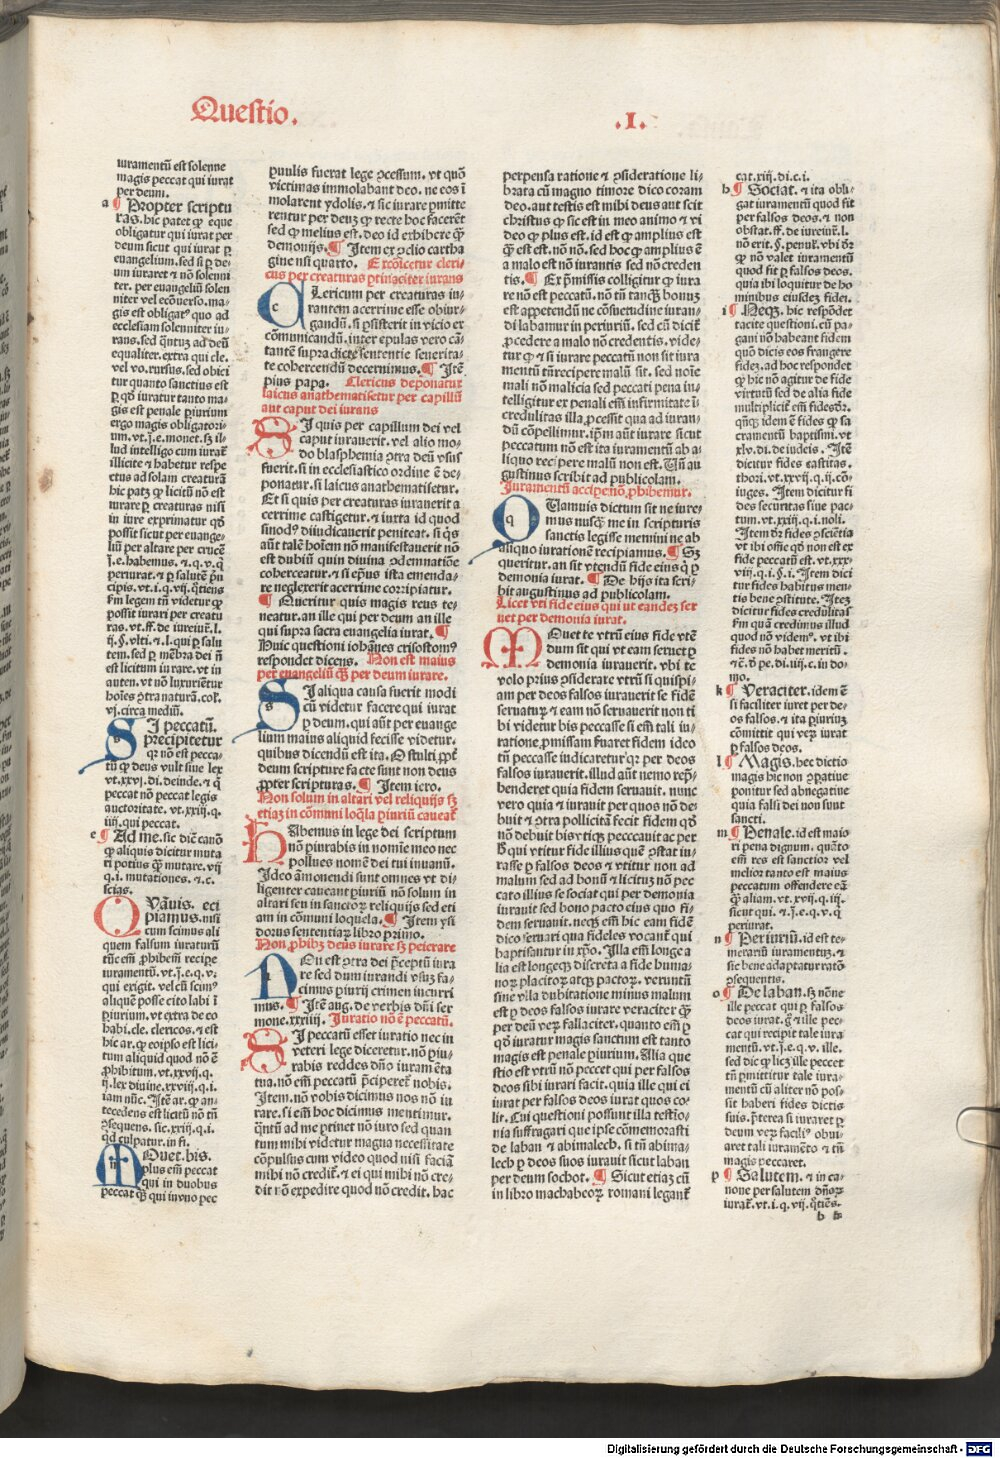 Questio.
.I.
iuramentū est solenne
magis peccat qui iurat
per deum.
a ¶ Propter scriptu
ras. hic patet ꝙ eque
obligatur qui iurat per
deum sicut qui iurat ꝑ
euangelium. sed si ꝑ de-
um iuraret ⁊ nō solenni
ter. per euangeliū solen
niter vel ecōuerso. ma-
gis est obligatꝰ quo ad
ecclesiam solenniter iu-
rans. sed q̄ntuꝫ ad deū
equaliter. extra qui cle.
vel vo. rursus. sed obici
tur quanto sanctius est
ꝑ qđ iuratur tanto ma-
gis est penale ꝑiurium
ergo magis obligatori-
um. vt. j. e. monet. sꝫ il-
lud intelligo cum iurat
illicite ⁊ habetur respe
ctus ad solam creaturā
hic patꝫ ꝙ licitū nō est
iurare ꝑ creaturas nisi
in iure exprimatur qđ
possit sicut per euange-
liū per altare per crucē
j. e. habemus. ⁊ q. v. q̄
periurat. ⁊ ꝑ salutē prī
cipis. vt. i. q. vij. q̄tiens
Sm legem tn̄ videtur ꝙ
possit iurari per creatu
ras. vt. ff. de iureiur. l.
ij. §. vlti. ⁊ l. qui ꝑ salu
tem. sed ꝑ mēbra dei nō
est licitum iurare. vt in
auten. vt nō luxuriētur
hoīes cōtra naturā. col.
vj. circa mediū.
SI peccatū.
precipitetur
qꝛ nō est pecca-
tū ꝙ deus vult siue lex
vt. xxvj. di. deinde. ⁊ q̄
peccat nō peccat legis
auctoritate. vt. xxiij. q.
iiij. qui peccat.
e ¶ Ad me. sic dic̄ canō
ꝙ aliquis dicitur muta
ri potius q̄ mutare. vij
q. i. mutationes. ⁊ c.
scias.
QVāuis. eci
piamus. nisi
cum scimus ali
quem falsum iuraturū
tūc em̄ ꝓhibem̄ recipe
iuramentū. vt. j. e. q. v.
qui exigit. vel cū scimꝰ
aliquē posse cito labi ī
ꝑiurium. vt extra de co
habi. cle. clericos. ⁊ est
hic ar. ꝙ eoipso est lici
tum aliquid quod nō ē
ꝓhibitum. vt. xxvij. q.
ij. lex diuine. xxviij. q. i.
iam nūc. Itē ar. ꝙ an-
tecedens est licitū nō tn̄
cōsequens. sic. xxij. q. i.
qđ culpatur. in fi.
MOuet. bis.
plus em̄ peccat
qui in duobus
peccat q̄ qui in vno pec
puulis fuerat lege cōcessum. vt quō
victimas immolabant deo. ne eos ī
molarent ydolis. ⁊ sic iurare ꝑmitte
rentur per deuꝫ ꝙ recte hoc facerēt
sed ꝙ melius est. deo id exhibere q̄
demonijs. ¶ Item ex cōclio cartha
gine nsi quarto. Excōicetur cleri-
cus per creaturas ꝑtinaciter iurans
CLericum per creaturas iu-
rantem acerrime esse obiur-
gandū. si ꝑstiterit in vicio ex
cōmunicandū. inter epulas vero cā-
tantē supra dicte sententie seuerita-
te cohercendū decernimus. ¶ Itē
pius papa. Clericus deponatur
laicus anathematisetur per capillū
aut caput dei iurans
SI quis per capillum dei vel
caput iurauerit. vel alio mo-
do blasphemia cōtra deū vsus
fuerit. si in ecclesiastico ordine ē de-
ponatur. si laicus anathematisetur.
Et si quis per creaturas iurauerit a
cerrime castigetur. ⁊ iuxta id quod
sinodꝰ diiudicauerit peniteat. si q̄s
aūt talē hoīem nō manifestauerit nō
est dubiū quin diuina cōdemnatiōe
coherceatur. ⁊ si ep̄us ista emenda-
re neglexerit acerrime corripiatur.
¶ Queritur quis magis reus te-
neatur. an ille qui per deum an ille
qui supra sacra euangelia iurat. ¶
Huic questioni iohānes crisostomꝰ
respondet dicens. Non est maius
per euangeliū q̄ per deum iurare.
SI aliqua causa fuerit modi
cū videtur facere qui iurat
ꝑ deum. qui aūt per euange
lium maius aliquid fecisse videtur.
quibus dicendū est ita. O stulti. ꝓpt
deum scripture facte sunt non deus
ꝓpter scripturas. ¶ Item iero.
Non solum in altari vel reliquijs sꝫ
etiaꝫ in cōmuni loq̄la ꝑiuriū caueat
HAbemus in lege dei scriptum
nō ꝑiurabis in nomīe meo nec
pollues nomē dei tui in vanū.
Ideo āmonendi sunt omnes vt di-
ligenter caueant ꝑiuriū nō solum in
altari seu in sanctoꝝ reliquijs sed eti
am in cōmuni loquela. ¶ Item ysi
dorus sententiaꝝ libro primo.
Non ꝓhibꝫ deus iurare sꝫ peierare
NOn est cōtra dei ꝑceptū iura
re sed dum iurandi vsuꝫ fa-
cimus ꝑiurij crimen incurri
mus. ¶ Itē aug. de verbis dn̄i ser
mone. xxiiij. Iuratio nō ē peccatū.
SI peccatū esset iuratio nec in
veteri lege diceretur. nō ꝑiu-
rabis reddes dn̄o iuramēta
tua. nō em̄ peccatū p̄ciperet nobis.
Item. nō vobis dicimus nos nō iu
rare. si em̄ hoc dicimus mentimur.
q̄ntū ad me ꝑtinet nō iuro sed quan
tum mihi videtur magna necessitate
cōpulsus cum video quod nisi faciā
mihi nō credit. ⁊ ei qui mihi nō cre-
dit nō expedire quod nō credit. hac
perpensa ratione ⁊ cōsideratione li-
brata cū magno timore dico coram
deo. aut testis est mihi deus aut scit
christus ꝙ sic est in meo animo ⁊ vi
deo ꝙ plus est. id est ꝙ amplius est
q̄ est est. nō nō. sed hoc ꝙ amplius ē
a malo est nō iurantis sed nō creden
tis. ¶ Ex p̄missis colligitur ꝙ iura
re nō est peccatū. nō tn̄ tanꝙ bonuꝫ
est appetendū ne cōsuetudine iuran-
di labamur in periuriū. sed cū dicit
ꝓcedere a malo nō credentis. vide-
tur ꝙ ⁊ si iurare peccatū non sit iura
mentū tn̄ recipere malū sit. sed noīe
mali nō malicia sed peccati pena in-
telligitur ex penali em̄ infirmitate ī
credulitas illa ꝓcessit qua ad iuran-
dū cōpellimur. ip̄m aūt iurare sicut
peccatum nō est ita iuramentū ab a-
liquo recipere malū non est. Vn̄ au
gustinus scribit ad publicolam.
Iuramentū accipe nō ꝓhibemur.
QUamuis dictum sit ne iure-
mus nusꝙ me in scripturis
sanctis legisse memini ne ab
aliquo iurationē recipiamus. ¶ Sꝫ
queritur. an sit vtendū fide eius q̄ ꝑ
demonia iurat. ¶ De hijs ita scri-
bit augustinus ad publicolam.
Licet vti fide eius qui vt eandeꝫ ser
uet per demonia iurat.
MOuet te vtrū eius fide vtē
dum sit qui vt eam seruet ꝑ
demonia iurauerit. vbi te
volo prius cōsiderare vtrū si quispi-
am per deos falsos iurauerit se fidē
seruaturꝫ ⁊ eam nō seruauerit non ti
bi videtur bis peccasse si em̄ tali iu-
ratione ꝓmissam fuaret fidem ideo
tn̄ peccasse iudicaretur qꝛ per deos
falsos iurauerit. illud aūt nemo rep̄-
benderet quia fidem seruauit. nunc
vero quia ⁊ iurauit per quos nō de-
buit ⁊ cōtra pollicitā fecit fidem qđ
nō debuit bis vtiqꝫ peccauit ac per
B qui vtitur fide illius quē cōstat iu-
rasse ꝑ falsos deos ⁊ vtitur non ad
malum sed ad bonū ⁊ licituꝫ nō pec
cato illius se sociat qui per demonia
iurauit sed bono pacto eius quo fi-
dem seruauit. neqꝫ em̄ hic eam fidē
dico seruari qua fideles vocant qui
baptisantur in xp̄o. Illa em̄ longe a
lia est longeqꝫ discreta a fide huma-
noꝝ placitoꝝ atqꝫ pactoꝝ. veruntn̄
sine vlla dubitatione minus malum
est ꝑ deos falsos iurare veraciter q̄
per deū veꝝ fallaciter. quanto em̄ ꝑ
qđ iuratur magis sanctum est tanto
magis est penale ꝑiurium. Alia que
stio est vtrū nō peccet qui per falsos
deos sibi iurari facit. quia ille qui ei
iurat per falsos deos iurat quos co-
lit. Cui questioni possunt illa testio-
nia suffragari que ipse cōmemorasti
de laban ⁊ abimalech. si tn̄ abima-
lech ꝑ deos suos iurauit sicut laban
per deum sochot. ¶ Sicut etiaꝫ cū
in libro machabeoꝝ romani legant
cat. xiij. di. c. i.
h ¶ Sociat. ⁊ ita obli-
gat iuramentū quod fit
per falsos deos. ⁊ non
obstat. ff. de iureiur. l.
nō erit. §. penul. vbi dr̄
ꝙ nō valet iuramentū
quod fit ꝑ falsos deos.
quia ibi loquitur de ho
minibus eiusdeꝫ fidei.
i ¶ Neqꝫ. hic respōdet
tacite questioni. cū pa-
gani nō habeant fidem
quō dicis eos frangere
fideꝫ. ad hoc respondet
ꝙ hic nō agitur de fide
virtutū sed de alia fide
multiplicit em̄ fides dr̄.
qn̄qꝫ idem ē fides ꝙ sa
cramentū baptismi. vt
xlv. di. de iudeis. Itē
dicitur fides castitas.
thori. vt. xxvij. q. ij. cō-
iuges. Item dicitur fi
des securitas siue pac-
tum. vt. xxiij. q. i. noli.
Item dr̄ fides cōsciētia
vt ibi oīne qđ non est ex
fide peccatū est. vt. xxv-
viij. q. i. §. i. Item dici
tur fides habitus men-
tis bene cōstitute. Iteꝫ
dicitur fides credulitas
Sm quā credimus illud
quod nō videmꝰ. vt ibi
fides nō habet meritū.
⁊ ē. đ pe. di. iiij. c. in do-
mo.
k ¶ Veraciter. idem ē
si faciliter iuret per de-
os falsos. ⁊ ita ꝑiuriuꝫ
cōmittit qui veꝝ iurat
ꝑ falsos deos.
l ¶ Magis. hec dictio
magis hic non cōpatiue
ponitur sed abnegatiue
quia falsi dei non sunt
sancti.
m ¶ Penale. id est maio
ri pena dignum. quāto
em̄ res est sanctior vel
melior tanto est maius
peccatum offendere eā
q̄ aliam. vt. xvij. q. iiij.
sicut qui. ⁊ j. e. q. v. q̄
periurat.
n ¶ Periuriū. id est te-
merariū iuramentuꝫ. ⁊
sic bene adaptatur ratō
cōsequentis.
o ¶ De laban. sꝫ nōne
ille peccat qui ꝑ falsos
deos iurat. q̄ ⁊ ille pec-
cat qui recipit tale iura
mentū. vt. j. e. q. v. ille.
sed dic ꝙ licꝫ ille peccet
tn̄ ꝑmittitur tale iura-
mentū cū aliter nō pos-
sit haberi fides dictis
suis. p̄terea si iuraret ꝑ
deum veꝝ faciliꝰ obui-
aret tali iuramēto ⁊ tn̄
magis peccaret.
p ¶ Salutem. ⁊ in ca-
none per salutem dn̄oꝝ
iurat. vt. i. q. vij. q̄tiēs.
b
Digitalisierung gefördert durch die Deutsche Forschungsgemeinschaft - DFG